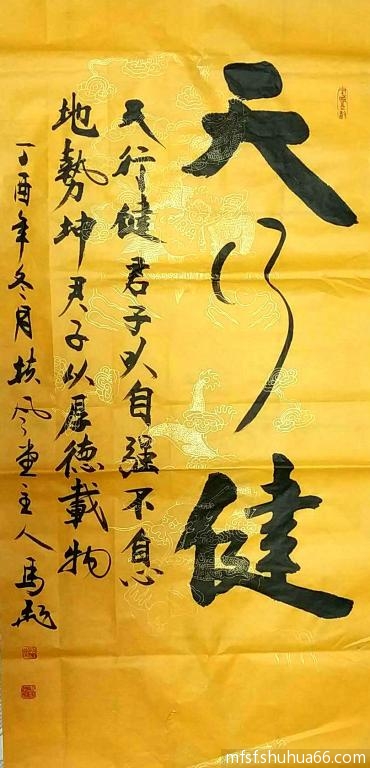 天行健
天行健君子以自强不息
地勢坤君子以厚德載物
丁酉年冬月扶風堂主人馬
mfsfshuhua66.com